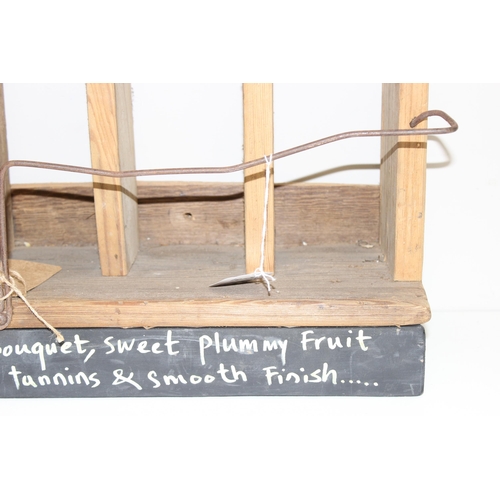 bouquet, sweet plummy Fruit
tannins & smooth Finish.....